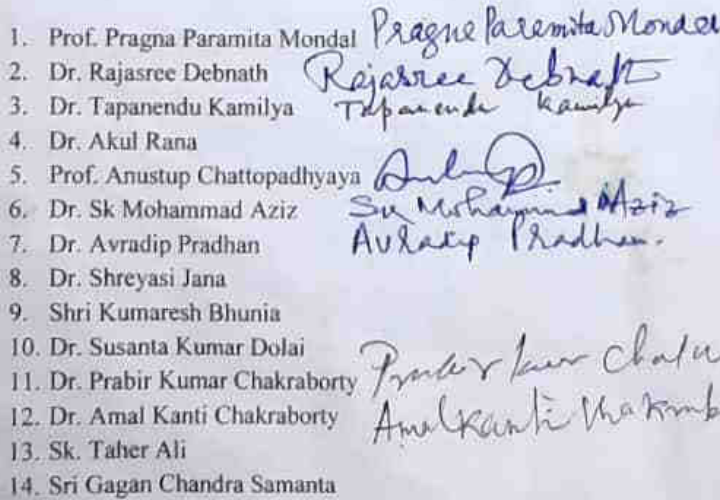 1. Prof. Pragna Paramita Mondal Pragna Paramita Mondal
2. Dr. Rajasree Debnath Rajasree Debnath
3. Dr. Tapanendu Kamilya Tapanendu Kamilya
4. Dr. Akul Rana
5. Prof. Anustup Chattopadhyaya
6. Dr. Sk Mohammad Aziz Sk Mohammad Aziz
7. Dr. Avradip Pradhan Avradip Pradhan.
8. Dr. Shreyasi Jana
9. Shri Kumaresh Bhunia
10. Dr. Susanta Kumar Dolai
11. Dr. Prabir Kumar Chakraborty
12. Dr. Amal Kanti Chakraborty Amal Kanti
13. Sk. Taher Ali
14. Sri Gagan Chandra Samanta